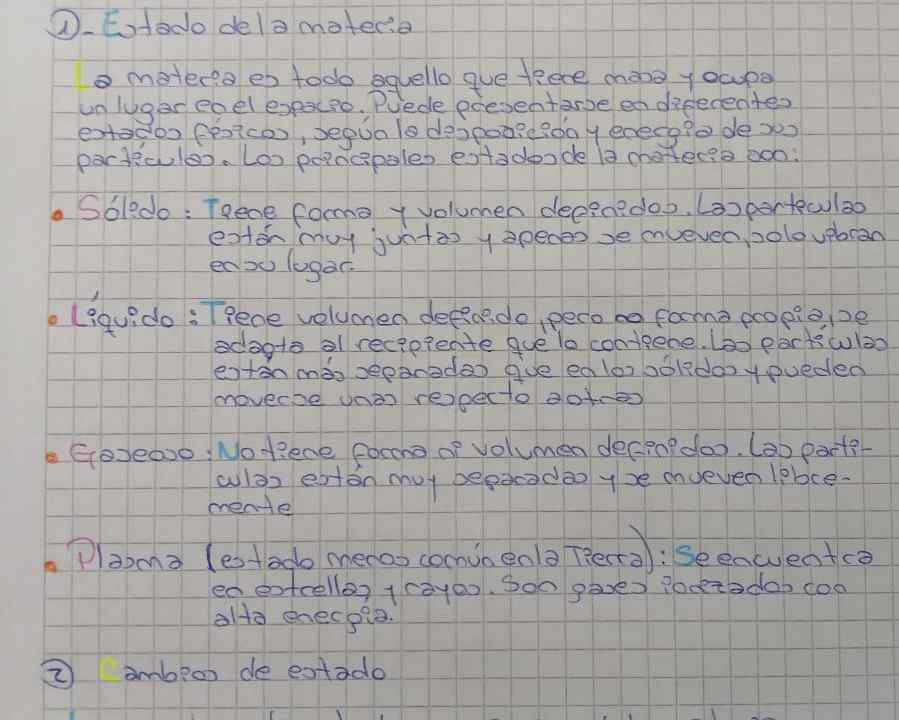 1.- Estado de la materia
La materia es todo aquello que tiene masa y ocupa
un lugar en el espacio. Puede presentarse en diferentes
estados físicos, según la desposición y energía de sus
partículas. Los principales estados de la materia son:
• Sólido: Tiene forma y volumen definidos. Las partículas
están muy juntas y apenas se mueven, solo vibran
en su lugar.
• Líquido: Tiene volumen definido, pero no forma propia, se
adapta al recipiente que lo contiene. Las partículas
están más separadas que en los sólidos y pueden
moverse unas respecto a otras
• Gaseoso: No tiene forma ni volumen definidos. Las partí-
culas están muy separadas y se mueven libre-
mente
• Plasma (estado menos común en la Tierra): Se encuentra
en estrellas y rayos. Son gases ionizados con
alta energía.
2 Cambios de estado